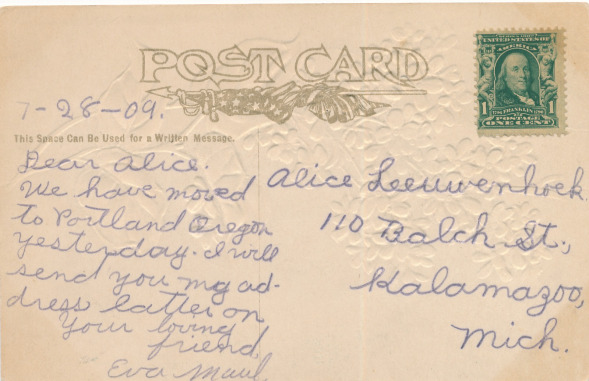 POST CARD
UNITED STATES OF
AMERICA
1 1
FRANKLIN
POSTAGE
ONE CENT
7-28-09.
This Space Can Be Used for a Written Message.
Dear Alice.
We have moved
to Portland Oregon
yesterday. I will
send you my ad-
dress latter on
Your loving
friend,
Eva Maul
Alice Leeuwenhoek
110 Balch St.,
Kalamazoo,
Mich.